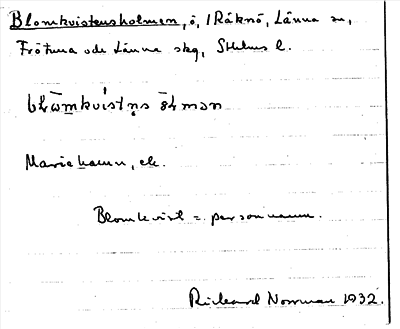 Blomkvistensholmen, ö, i Råknö, Länna sn,
Frötuna och Länna skg, Sthlms l.
blωmkvist̥ns ɵlmən
Mariehamn, ek.
Blomkvist = personnamn.
Rickard Norrman 1932.